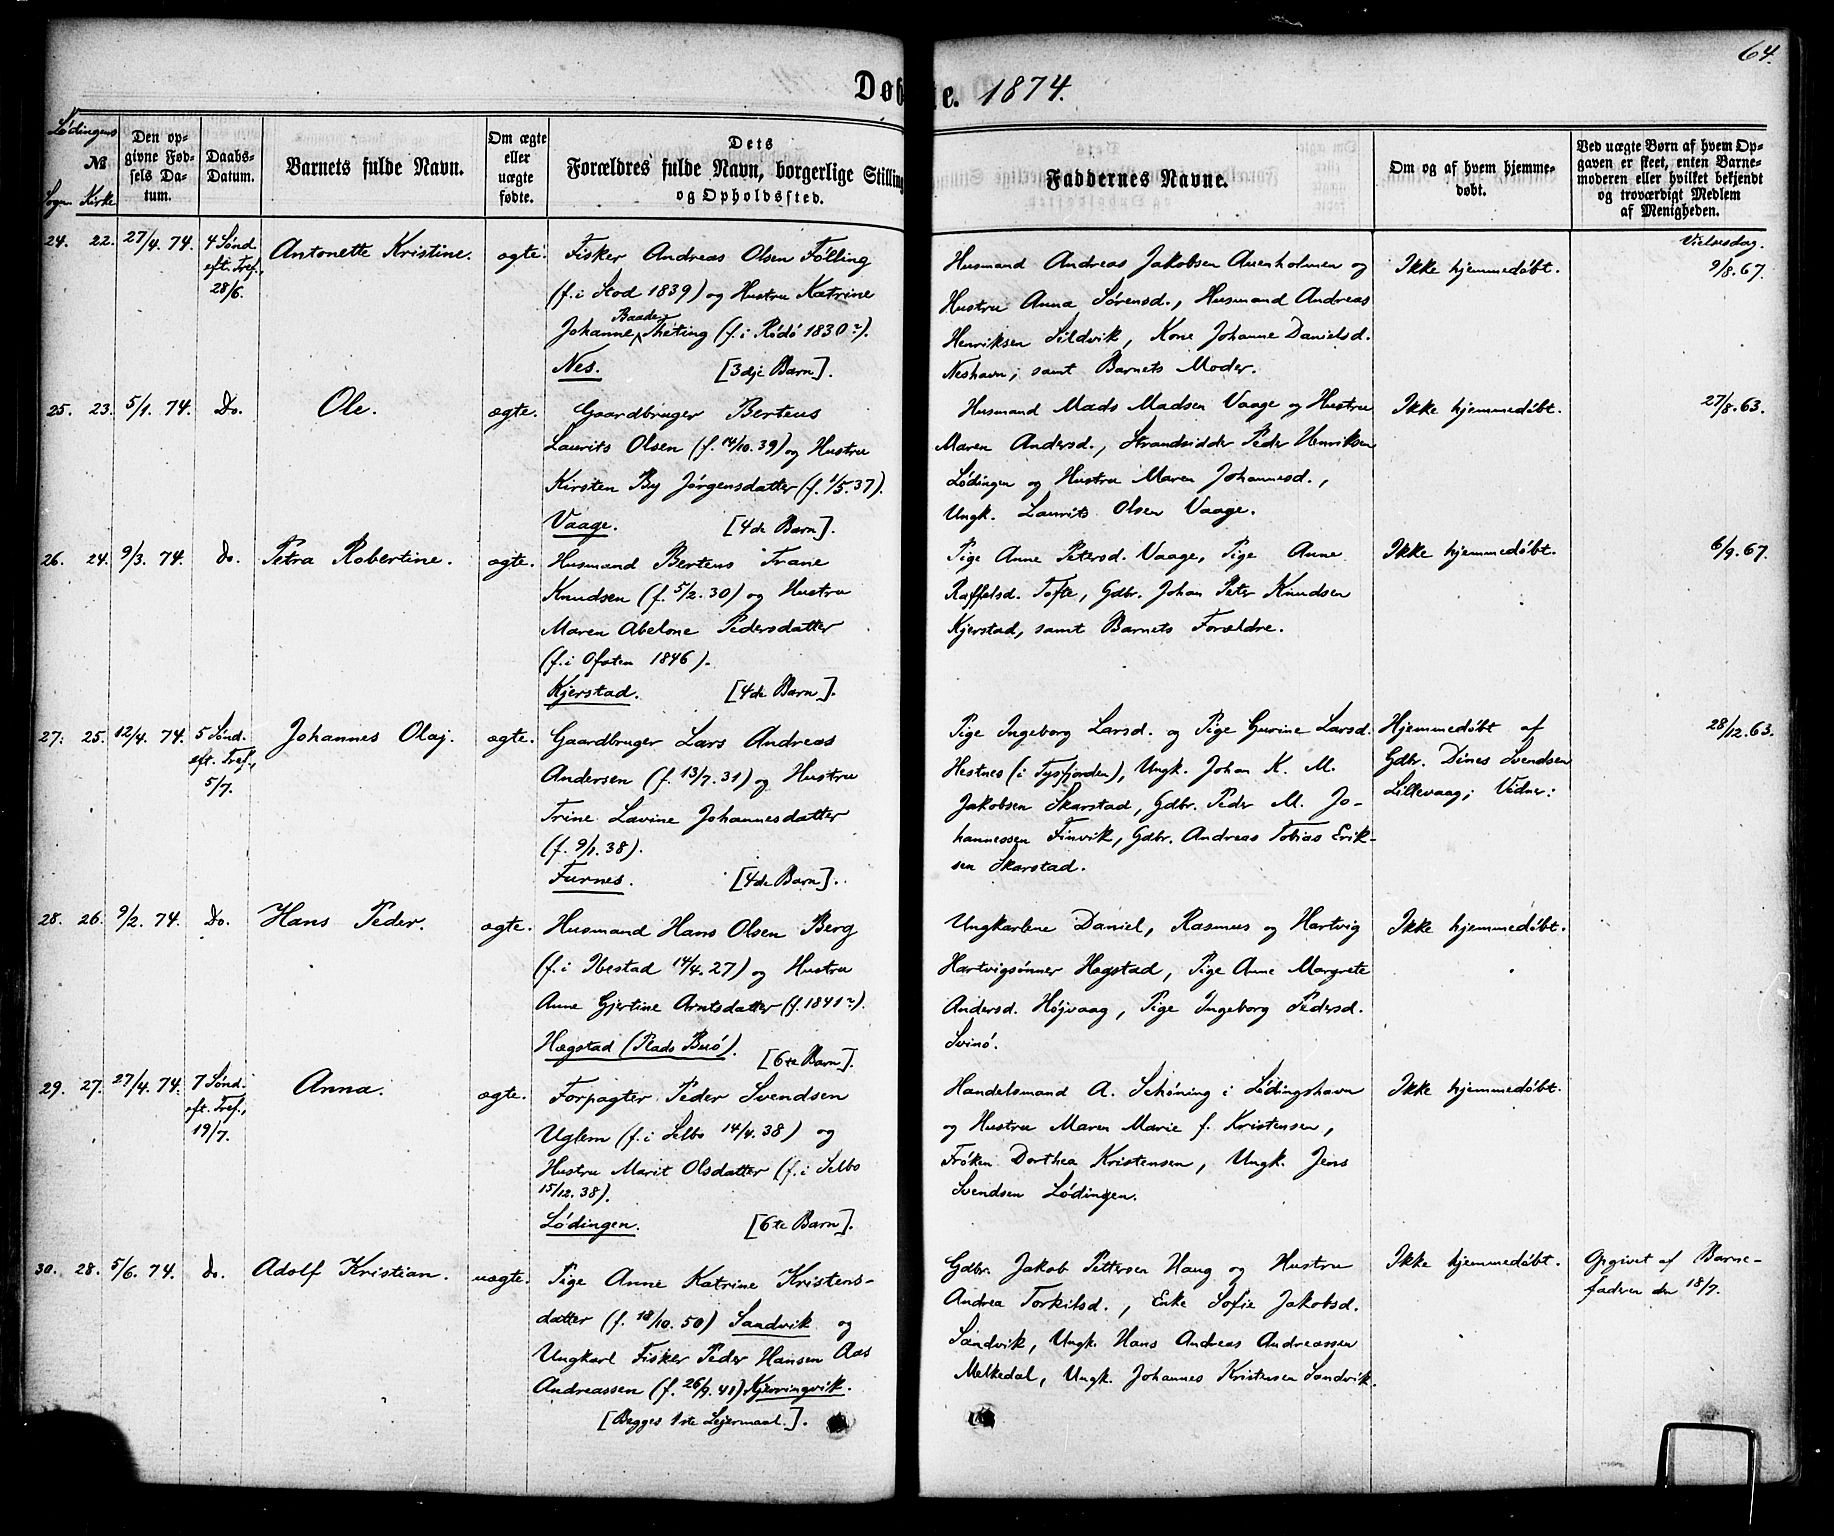 64.
Døbte. 1874.
Lødingens
No
Sogn Kirke
Den opgivne Fødsels Datum.
Daabs-Datum.
Barnets fulde Navn.
Om ægte eller uægte fødte.
Dets Forældres fulde Navn, borgerlige Stilling og Opholdssted.
Faddernes Navne.
Om og af hvem hjemmedøbt.
Ved uægte Børn af hvem Opgaven er skeet, enten Barnemoderen eller hvilket bekjendt og troværdigt Medlem af Menigheden.
24. 22. 27/4. 74. 4 Sønd. eft. Tref., 28/6. Antonette Kristine. ægte.
Fisker Andreas Olsen Følling
(f. i Stod 1839) og Hustru Katrine
Johanne Baade Theting (f. i Rødø 1830?).
Nes. [3dje Barn].
Husmand Andreas Jakobsen Auenholmen og
Hustru Anna Sørensd., Husmand Andreas
Henriksen Sildvik, Kone Johanne Danielsd.
Neshavn; samt Barnets Moder.
Ikke hjemmedøbt.
Vielsesdag.
9/8. 67.
25. 23. 5/1. 74. Do. Ole. ægte.
Gaardbruger Berteus
Laurits Olsen (f. 14/10. 39) og Hustru
Kirsten By Jørgensdatter (f. 1/5. 37).
Vaage. [4de Barn].
Husmand Mads Madsen Vaage og Hustru
Maren Andersd., Strandsidder Peder Henriksen
Lødingen og Hustru Maren Johannesd.,
Ungk. Laurits Olsen Vaage.
Ikke hjemmedøbt.
27/8. 63.
26. 24. 9/3. 74. Do. Petra Robertine. ægte.
Husmand Berteus Frane
Knudsen (f. 5/2. 30) og Hustru
Maren Abelone Pedersdatter
(f. i Ofoten 1846).
Kjerstad. [4de Barn].
Pige Anne Petersd. Vaage, Pige Anne
Raffelsd. Tofte, Gdbr. Johan Peter Knudsen
Kjerstad, samt Barnets Forældre.
Ikke hjemmedøbt.
6/9. 67.
27. 25. 12/4. 74. 5 Sønd. eft. Tref., 5/7. Johannes Olaj. ægte.
Gaardbruger Lars Andreas
Andersen (f. 13/7. 31) og Hustru
Trine Lavine Johannesdatter
(f. 9/1. 38).
Furnes. [4de Barn].
Pige Ingeborg Larsd. og Pige Gurine Larsd.
Hestnes (i Tysfjorden), Ungk. Johan K. M.
Jakobsen Skarstad, Gdbr. Peder M. Jo-
hannessen Finvik, Gdbr. Andreas Tobias Erik-
sen Skarstad.
Hjemmedøbt af
Gdbr. Dines Svendsen
Lillevaag; Vidner:
28/12. 63.
28. 26. 9/2. 74. Do. Hans Peder. ægte.
Husmand Hans Olsen Berg
(f. i Ibestad 14/4. 27) og Hustru
Anne Gjertine Arntsdatter (f. 1841?).
Hægstad (Plads Buø). [6te Barn].
Ungkarlene Daniel, Rasmus og Hartvig
Hartvigsønner Hægstad, Pige Anne Margrete
Andersd. Højvaag, Pige Ingeborg Pedersd.
Svinø.
Ikke hjemmedøbt.
29. 27. 27/4. 74. 7 Sønd. eft. Tref., 19/7. Anna. ægte.
Forpagter Peder Svendsen
Uglem (f. i Selbo 14/4. 38) og
Hustru Marit Olsdatter (f. i Selbo
15/12. 38).
Lødingen. [6te Barn].
Handelsmand A. Schøning i Lødingshavn
og Hustru Maren Marie f. Kristensen,
Frøken Dorthea Kristensen, Ungk. Jens
Svendsen Lødingen.
Ikke hjemmedøbt.
30. 28. 5/6. 74. Do. Adolf Kristian. uægte.
Pige Anne Katrine Kristens-
datter (f. 18/10. 50) Sandvik og
Ungkarl Fisker Peder Hansen Aas
Andreassen (f. 26/9. 41) Kjerringvik.
[Begges 1ste Lejermaal.].
Gdbr. Jakob Pettersen Haug og Hustru
Andrea Torkilsd., Enke Sofie Jakobsd.
Sandvik, Ungk. Hans Andreas Andreassen
Melkedal, Ungk. Johannes Kristensen Sandvik.
Ikke hjemmedøbt.
Opgivet af Barne-
faderen den 18/7.